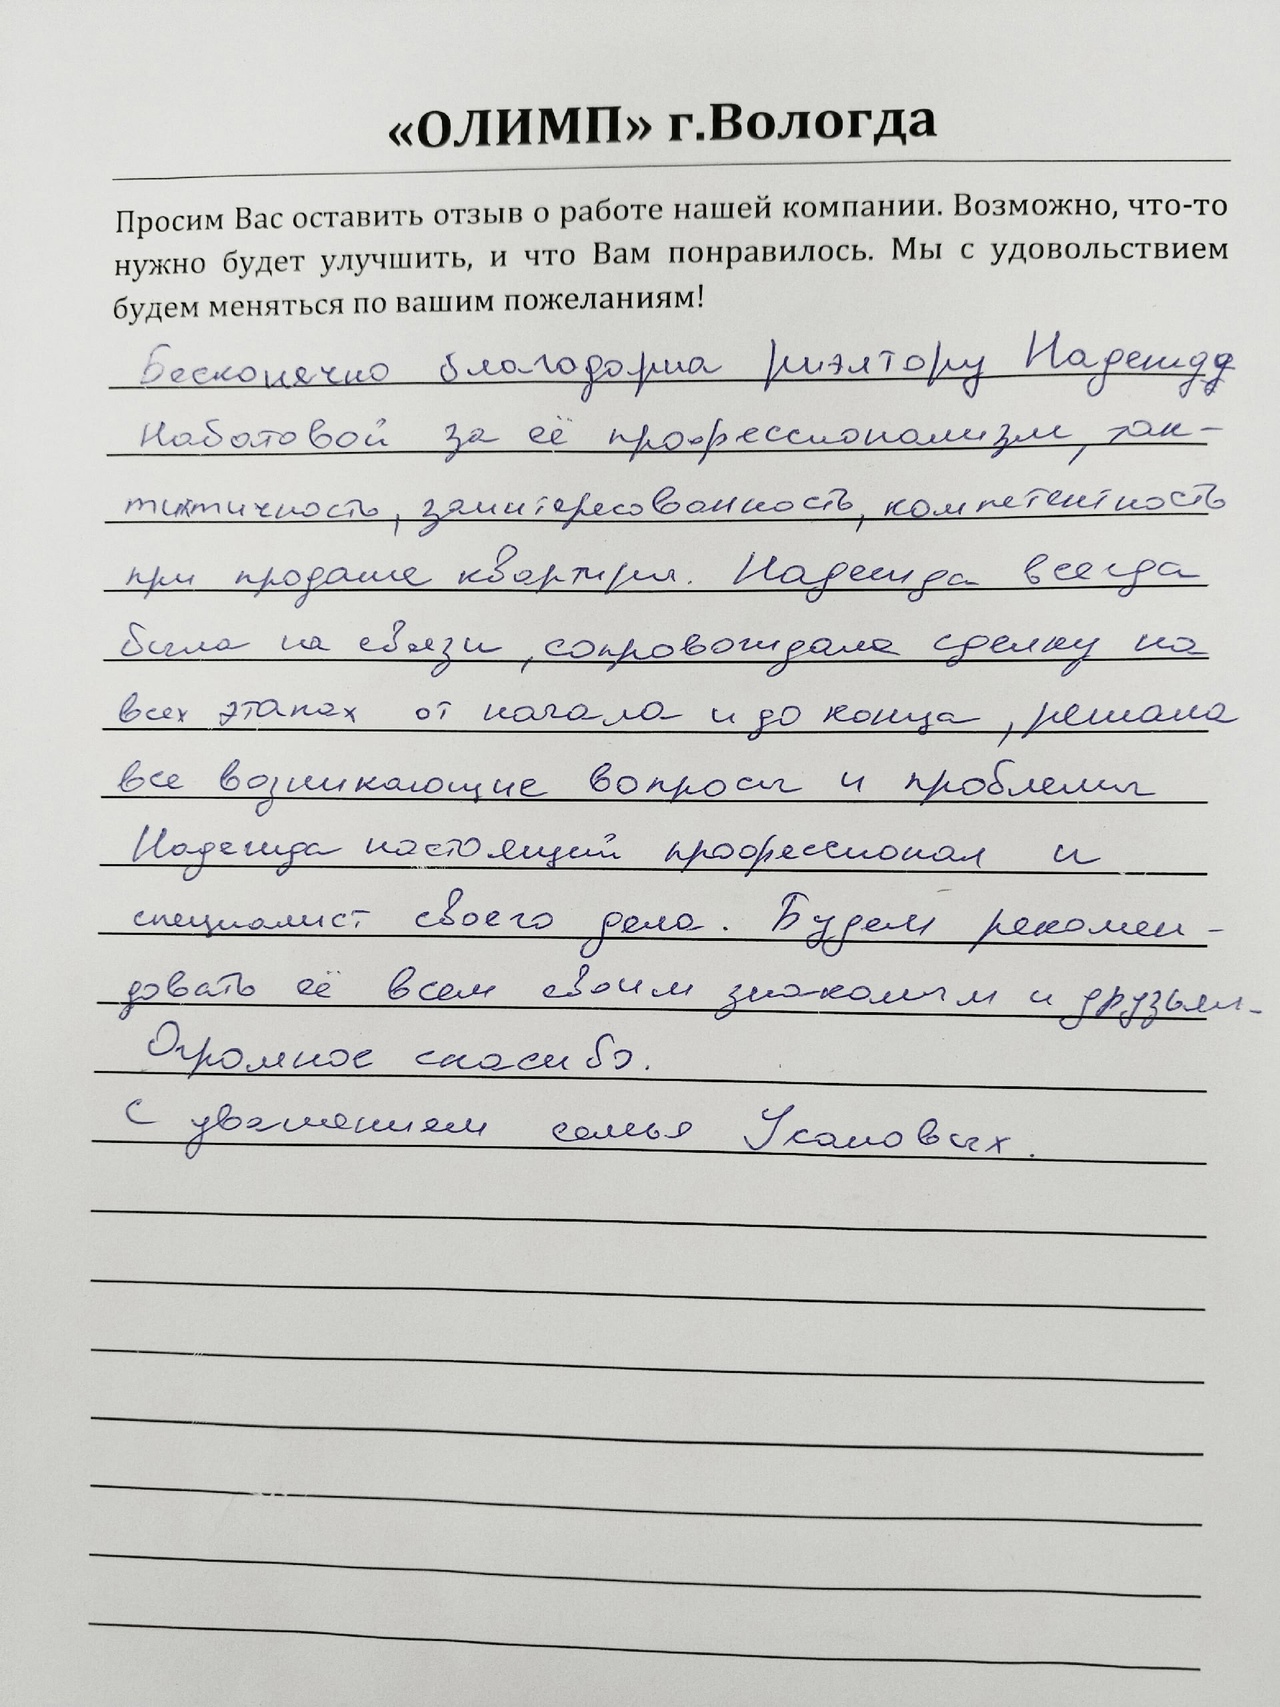 «ОЛИМП» г.Вологда
Просим Вас оставить отзыв о работе нашей компании. Возможно, что-то
нужно будет улучшить, и что Вам понравилось. Мы с удовольствием
будем меняться по вашим пожеланиям!
Бесконечно благодарна риэлтору Надежде
Наботовой за её профессионализм, так-
тиктичность, заинтересованность, компетентность
при продаже квартиры. Надежда всегда
была на связи, сопровождала сделку на
всех этапах от начала и до конца, решала
все возникающие вопросы и проблемы
Надежда настоящий профессионал и
специалист своего дела. Будем рекомен-
довать её всем своим знакомым и друзьям.
Огромное спасибо.
С уважением семья Усановых.